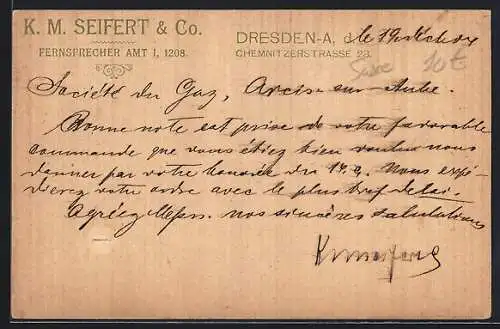 K. M. SEIFERT & Co.
FERNSPRECHER AMT I, 1208.
DRESDEN-A, d. le 19 décbre 04
CHEMNITZERSTRASSE 23.
10€
Société du Gaz, Arcis-sur-Aube.
Bonne note est prise de votre favorable
commande que vous étiez bien voulu nous
donner par votre honorée du 14. Nous expé-
dierez votre ordre avec le plus bref delai.
Agréez Mess. nos sincères salutations